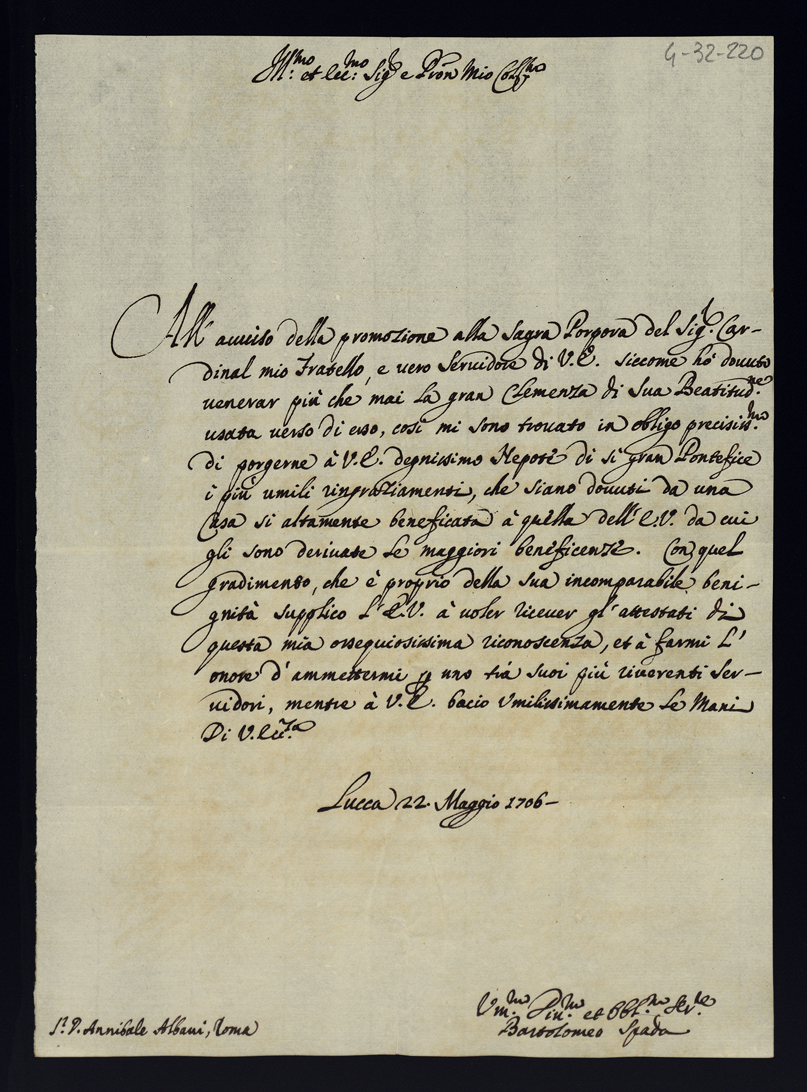 4-32-220
Ill:mo et Ecc:mo Sig.r e Pron Mio Col.mo
All' auuiso della promozione alla Sagra Porpora del Sig.r Car-
dinal mio Fratello, e uero Seruidore di V.E. siccome hò douuto
venerar più che mai la gran Clemenza di Sua Beatitud.ne
usata verso di esso, così mi sono trouato in obligo preciliss.mo
di porgerne à V.E. degnissimo Nepote di sì gran Pontefice
i più umili ringraziamenti, che siano douuti da una
Casa si altamente beneficata à quella dell' E.V. da cui
gli sono deriuate le maggiori beneficenze. Con quel
gradimento, che è proprio della sua incomparabile beni-
gnità supplico l'E.V. à voler riceuer gl' attestati di
questa mia ossequiosissima riconoscenza, et à farmi l'
onore d' ammettermi p uno trà suoi più riuerenti Ser-
uidori, mentre à V.E. bacio Vmilissimamente le Mani
Di V.Ecc.za
Lucca 22. Maggio 1706-
Vm.mo Diu.mo et Obbl.mo Ser.re
S.r D. Annibale Albani, Roma
Bartolomeo Spada